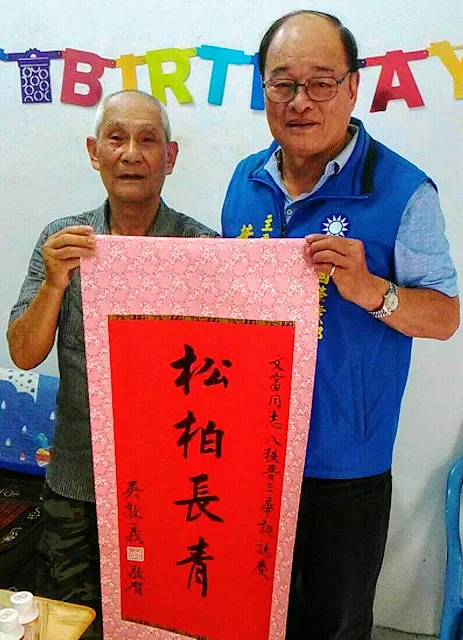 BIRTH
AY
文富同志八秩晋三華誕誌慶
松柏長青
吳敦義
敬賀
主